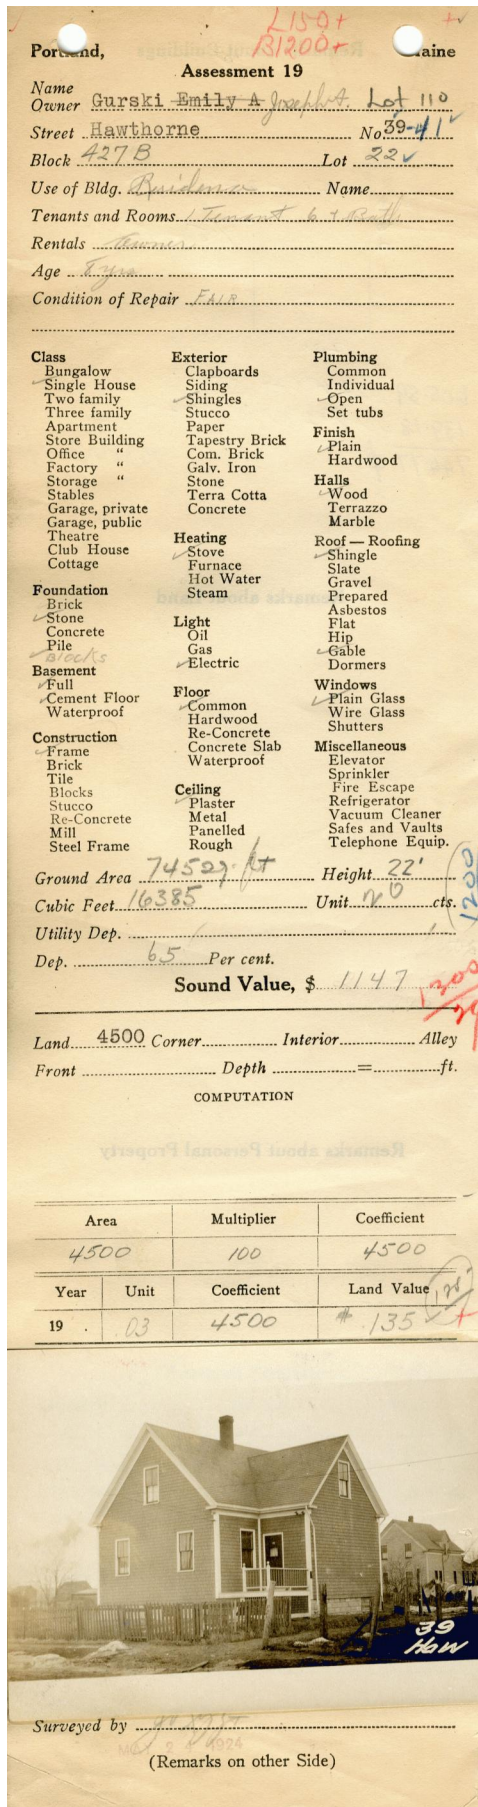 L150+
B1200+
Portland, Maine
Assessment 19
Name
Owner Gurski Emily A Joseph A. Lot 110
Street Hawthorne No 39-41
Block 427 B Lot 22
Use of Bldg. Residence Name
Tenants and Rooms 1 Tenant 6 + Bath
Rentals Owner
Age 8 yrs
Condition of Repair FAIR
Class
Bungalow
Single House
Two family
Three family
Apartment
Store Building
Office "
Factory "
Storage "
Stables
Garage, private
Garage, public
Theatre
Club House
Cottage
Foundation
Brick
Stone
Concrete
Pile
Blocks
Basement
Full
Cement Floor
Waterproof
Construction
Frame
Brick
Tile
Blocks
Stucco
Re-Concrete
Mill
Steel Frame
Exterior
Clapboards
Siding
Shingles
Stucco
Paper
Tapestry Brick
Com. Brick
Galv. Iron
Stone
Terra Cotta
Concrete
Heating
Stove
Furnace
Hot Water
Steam
Light
Oil
Gas
Electric
Floor
Common
Hardwood
Re-Concrete
Concrete Slab
Waterproof
Ceiling
Plaster
Metal
Panelled
Rough
Plumbing
Common
Individual
Open
Set tubs
Finish
Plain
Hardwood
Halls
Wood
Terrazzo
Marble
Roof — Roofing
Shingle
Slate
Gravel
Prepared
Asbestos
Flat
Hip
Gable
Dormers
Windows
Plain Glass
Wire Glass
Shutters
Miscellaneous
Elevator
Sprinkler
Fire Escape
Refrigerator
Vacuum Cleaner
Safes and Vaults
Telephone Equip.
Ground Area 745 sq. ft Height 22'
Cubic Feet 16385 Unit 20 cts.
1200
Utility Dep.
Dep. 65 Per cent.
Sound Value, $ 1147
Land 4500 Corner Interior Alley
Front Depth = ft.
COMPUTATION
Area Multiplier Coefficient
4500 100 4500
Year Unit Coefficient Land Value
19 .03 4500 $ 135
39
Haw
Surveyed by
1924
(Remarks on other Side)